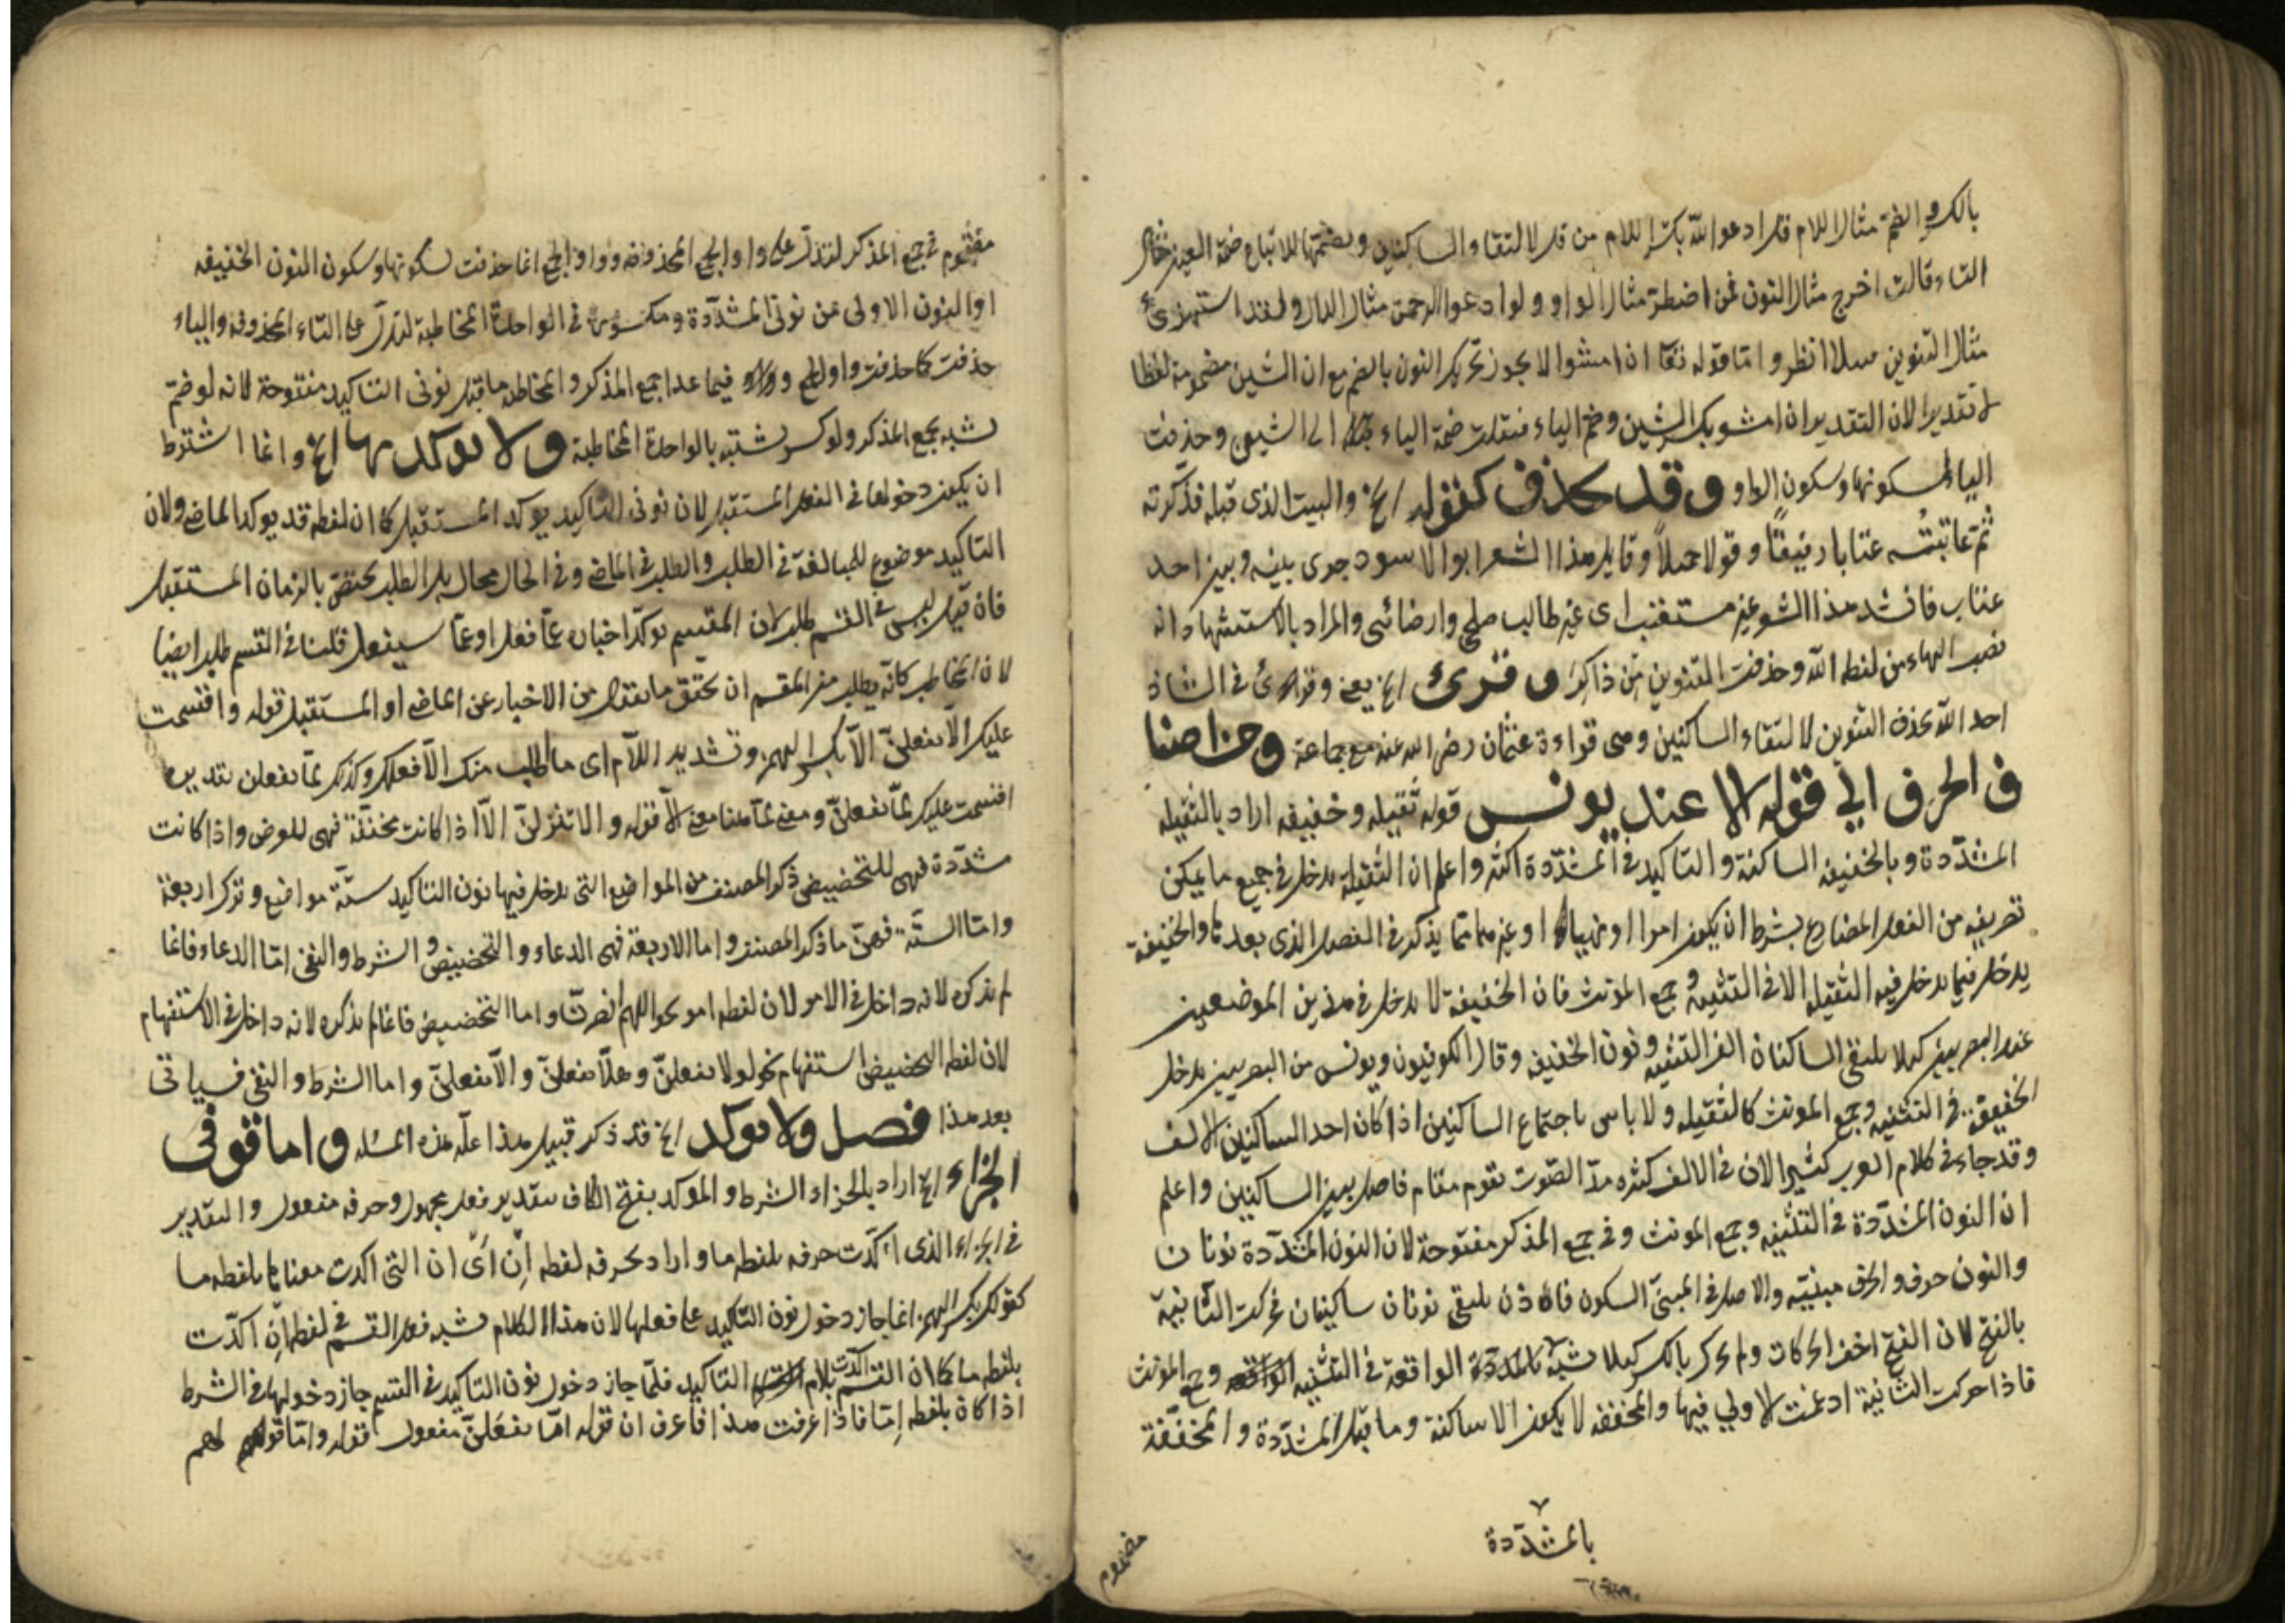 بالكسر والضم مثال اللام قل ادعوا الله بكسر اللام من قل لالتقاء الساكنين وبضمها للاتباع ضمة العين مثال
التاء وقالت اخرج مثال النون فمن اضطر مثال الواو ولوا دعوا الرحمن مثال الدال ولقد استهزئ
مثال التنوين انظر واما قوله تعا ان امشوا لا يجوز تحريك النون بالضم مع ان الشين مضمومة لفظا
لا تقديرا لان التقدير ان امشيو بكسر الشين وضم الياء فنقلت ضمة الياء الى الشين وحذفت
الياء لسكونها وسكون الواو وقد يحذف كقوله الخ والبيت الذى قبله فذكرته
ثم عاتبته عتابا رفيقا وقولا جميلا وقايل هذا الشعر ابو الاسود جرى بينه وبين احد
عتاب فانشد هذا الشعر غير مستعتب اى غير طالب صلحى وارضائى والمراد بالاستشهاد انه
نصب الهاء من لفظ الله وحذفت التنوين من ذاكر وقرئ الخ يعنى وقرئ فى الشاذ
احد الله بحذف التنوين لالتقاء الساكنين وهى قراءة عثمان رضى الله عنه مع جماعة ومن اصناف
ف الحرف الى قوله الا عند يونس قوله ثقيله وخفيفه اراد بالثقيله
المشددة وبالخفيفه الساكنة والتاكيد فى المشددة اكثر واعلم ان الثقيلة يدخل فى جميع ما يمكن
تصريفه من الفعل المضارع بشرط ان يكون امرا او نهيا او غيرهما مما يذكر فى الفصل الذى بعدها والخفيفة
يدخل فيما يدخل فيه الثقيله الا فى التثنيه وجمع المؤنث فان الخفيفة لا يدخل فى هذين الموضعين
عند البصريين كيلا يلتقى الساكنان الف التثنيه ونون الخفيفه وقال الكوفيون ويونس من البصريين يدخل
الخفيفة فى التثنيه وجمع المونث كالثقيله ولا باس باجتماع الساكنين اذا كان احد الساكنين الالف
وقد جاء فى كلام العرب كثيرا لان فى الالف كثره مد الصوت تقوم مقام فاصل بين الساكنين واعلم
ان النون المشددة فى التثنيه وجمع المونث وفى جمع المذكر مفتوحة لان النون المشددة نونان
والنون حرف والحرف مبنيه والاصل فى المبنى السكون فاذن يلتقى نونان ساكنان فحركت الثانية
بالفتح لان الفتح اخف الحركات ولم يحرك بالكسر كيلا يشبه الواقعة فى التثنيه وجمع المونث
فاذا حركت الثانية ادغمت الاولى فيها والمخففه لا يكون الا ساكنة وما قبل المشددة والمخففة
بالمشددة
مضموم
مضموم فى جمع المذكر لتدل على واو الجمع المحذوفه وواو الجمع انما حذفت لسكونها وسكون النون الخفيفه
او النون الاولى من نونى المشددة ومكسورة فى الواحدة المخاطبة لتدل على الياء المحذوفه والياء
حذفت كما حذفت واو الجمع فيما عدا جمع المذكر والمخاطبه ما قبل نونى التاكيد مفتوحة لانه لو ضم
لشبه بجمع المذكر ولو كسر لشتبه بالواحدة المخاطبة ولا يوكد بها الخ وانما اشترط
ان يكون دخولها فى الفعل المستقبل لان نونى التاكيد يوكد المستقبل كما ان لفظه قد يوكد الماضى ولان
التاكيد موضوع للمبالغة فى الطلب والطلب فى الماضى وفى الحال محال بل الطلب يختص بالزمان المستقبل
فان قيل ليس فى القسم طلب لان المقسم يوكد اخباره عما فعل او عما سيفعل قلنا فى القسم طلب ايضا
لان المخاطب كانه يطلب من المقسم ان يحقق ما نقول من الاخبار عن الماضى او المستقبل قوله واقسمت
عليك الا تفعلن الا بكسر الهمزه وتشديد اللام اى ما اطلب منك الا فعلك وكذلك لما تفعلن تقديره
اقسمت عليك لما تفعلن ومعنى لما هنا معنى الا قوله والا تنزلن الا اذا كانت مخففة فهى للعرض واذا كانت
مشددة فهى للتحضيض ذكر المصنف من المواضع التى يدخل فيها نون التاكيد ستة مواضع وترك اربعة
واما الستة فهى ما ذكر المصنف واما الاربعة فهى الدعاء والتحضيض والشرط والنفى اما الدعاء فانما
لم يذكره لانه داخل فى الامر لان لفظه امر نحو اللهم انصرن واما التحضيض فانما لم يذكره لانه داخل فى الاستفهام
لان لفظ التحضيض استفهام نحو لولا تفعلن وهلا تفعلن والا تفعلن واما الشرط والنفى فسياتى
بعد هذا فصل ولا يوكد الخ قد ذكر قبيل هذا علة هذه المسئله واما قوفى
الجزاء الخ اراد بالجزاء الشرط والموكد بفتح الكاف بتقدير فعل مجهول وحرفه مفعول والتقدير
فى الجزاء الذى اكدت حرفه بلفظه ما واراد بحرفه لفظه ان اى ان التى اكدت معناها بلفظه ما
كقولك بكسر الهمزه انما جاز دخول نون التاكيد على فعلها لان هذا الكلام شبه فعل القسم فى لفظه ان اكدت
بلفظه ما كما ان القسم اكدت بلام التاكيد فلما جاز دخول نون التاكيد فى القسم جاز دخولها فى الشرط
اذا كان بلفظه اما فاذا عرفت هذا فاعرف ان قوله اما تفعلن مفعول قوله واما قولهم لهم